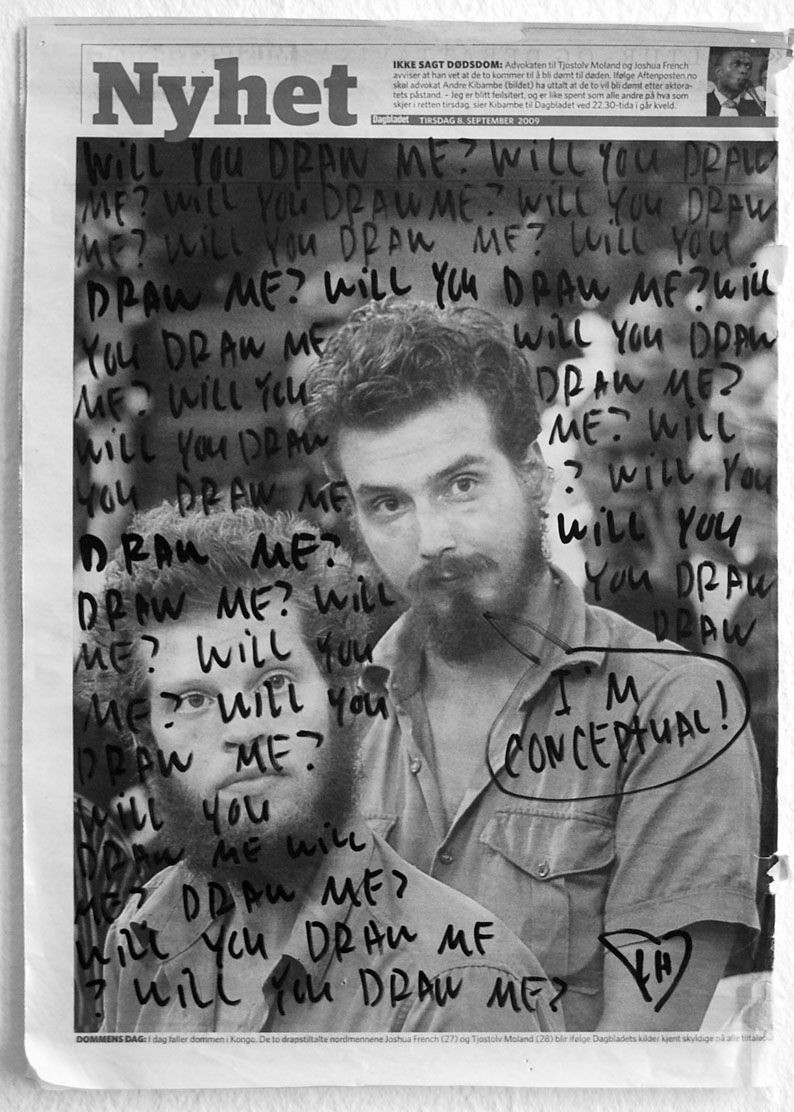 Nyhet
IKKE SAGT DØDSDOM: Advokaten til Tjostolv Moland og Joshua French
avviser at han vet at de to kommer til å bli dømt til døden. Ifølge Aftenposten.no
skal advokat Andre Kibambe (bildet) ha uttalt at de to vil bli dømt etter aktora-
tets påstand. – Jeg er blitt feilsitert, og er like spent som alle andre på hva som
skjer i retten tirsdag, sier Kibambe til Dagbladet ved 22.30-tida i går kveld.
Dagbladet TIRSDAG 8. SEPTEMBER 2009
WILL YOU DRAW ME? WILL YOU DRAW
ME? WILL YOU DRAW ME? WILL YOU DRAW
ME? WILL YOU DRAW ME? WILL YOU
DRAW ME? WILL YOU DRAW ME? WILL
YOU DRAW ME WILL YOU DRAW
ME? WILL YOU DRAW ME?
WILL YOU DRAW ME? WILL
YOU DRAW ME ? WILL YOU
DRAW ME? WILL YOU
DRAW ME? WILL YOU DRAW
ME? WILL YOU DRAW
ME? WILL YOU
DRAW ME?
WILL YOU
DRAW ME WILL
ME? DRAW ME?
WILL YOU DRAW ME
? WILL YOU DRAW ME?
I'M
CONCEPTUAL!
DOMMENS DAG: I dag faller dommen i Kongo. De to drapstiltalte nordmennene Joshua French (27) og Tjostolv Moland (28) blir ifølge Dagbladets kilder kjent skyldige på alle